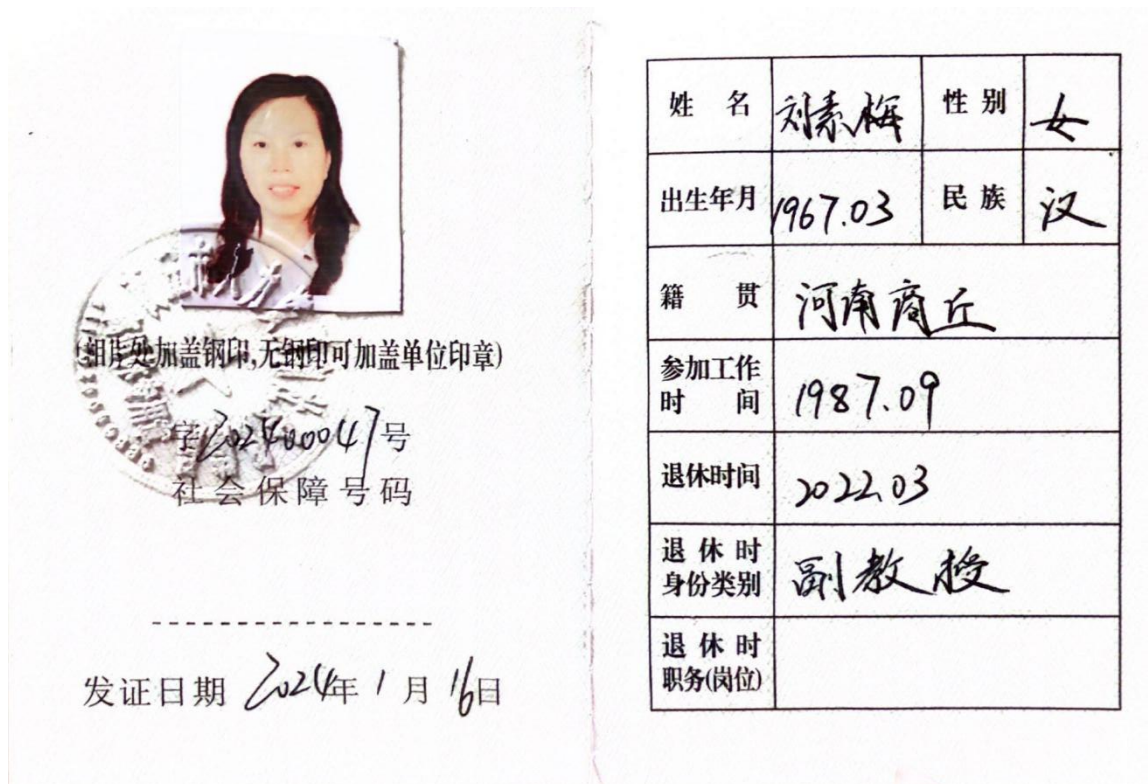 (相片处加盖钢印,无钢印可加盖单位印章)
字202400047号
社会保障号码
发证日期 2024年1月16日
姓名 刘素梅 性别 女
出生年月 1967.03 民族 汉
籍贯 河南商丘
参加工作时间 1987.09
退休时间 2022.03
退休时身份类别 副教授
退休时职务(岗位)